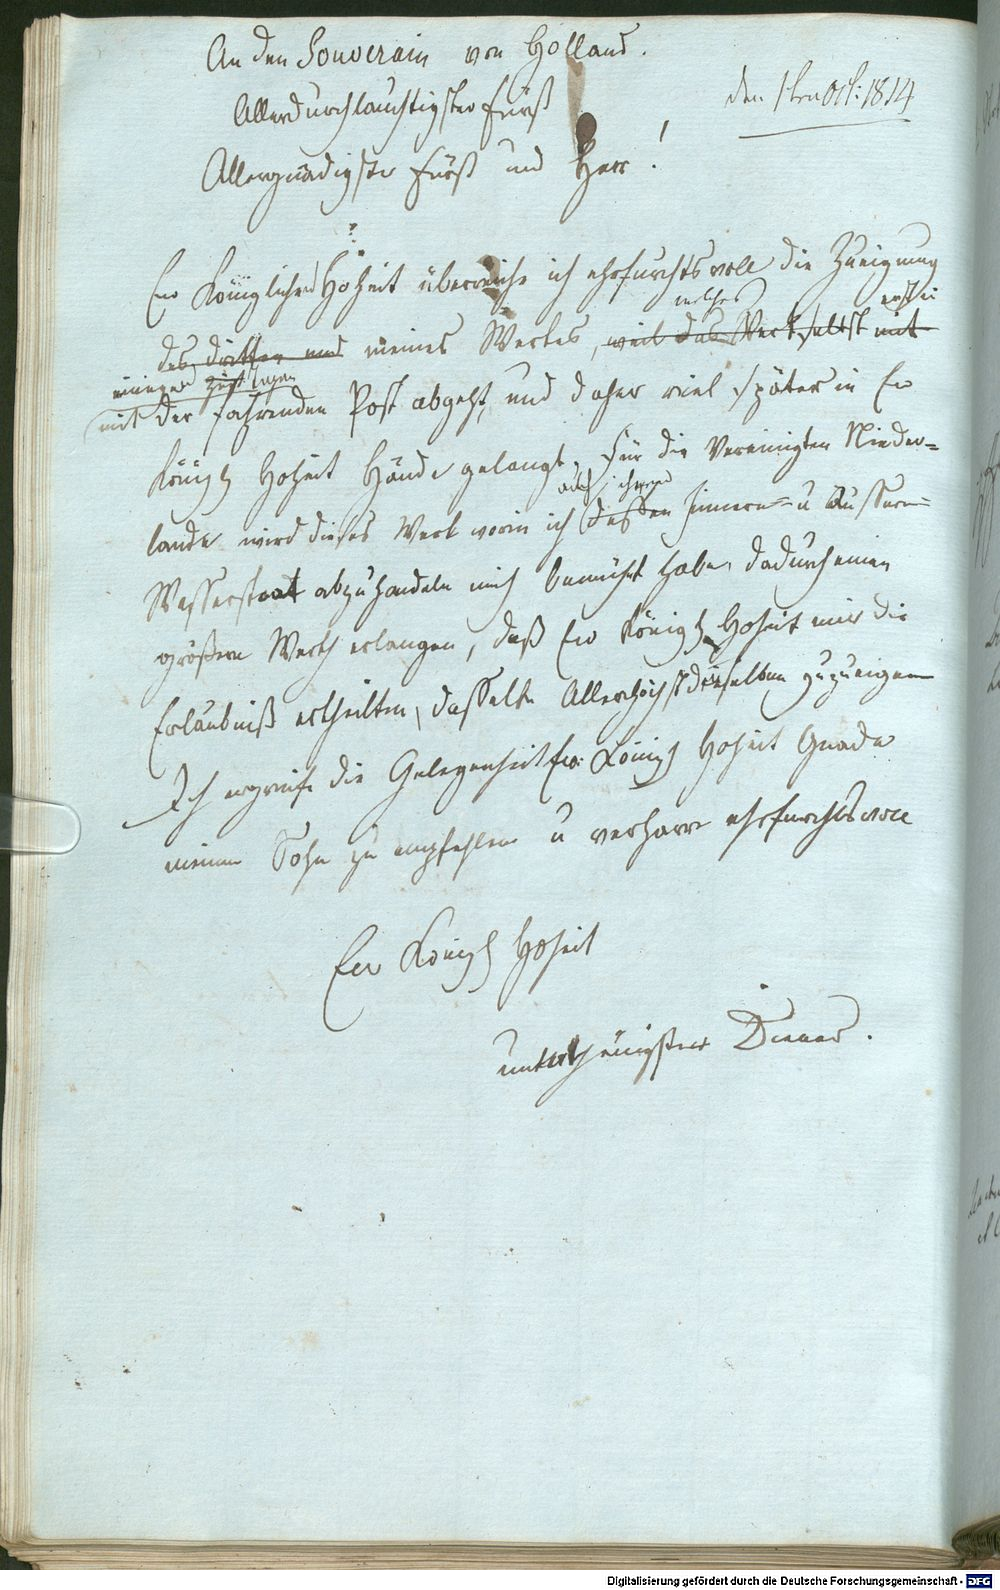 An den Souverain von Holland.
den 1ten Oct: 1814
Allerdurchlauchtigster Fürst
Allergnädigster Fürst und Herr!
Ew Königlichen Hoheit überreiche ich ehrfurchtsvoll die Zueigung
welches erst in
des dritten und meines Werkes, weil das Werk selbst mit
einigen Tagen
mit der fahrenden Post abgeht, und daher viel später in Ew
Königl Hoheit Hände gelangt. Für die Vereinigten Nieder-
auch ihren
lande wird dieses Werk worin ich dessen Innern- u Aussern-
Wasserstaat abzuhandeln mich bemüht habe, dadurch einen
größern Werth erlangen, daß Ew Königl Hoheit mir die
Erlaubniß ertheilten, dasselbe Allerhöchstdieselben zuzueigen
Ich ergreife die Gelegenheit Ew: Königl Hoheit Gnade
meinen Sohn zu empfehlen u verharre ehrfurchtsvoll
Ew Königl Hoheit
unterthänigster Diener.
Digitalisierung gefördert durch die Deutsche Forschungsgemeinschaft - DFG